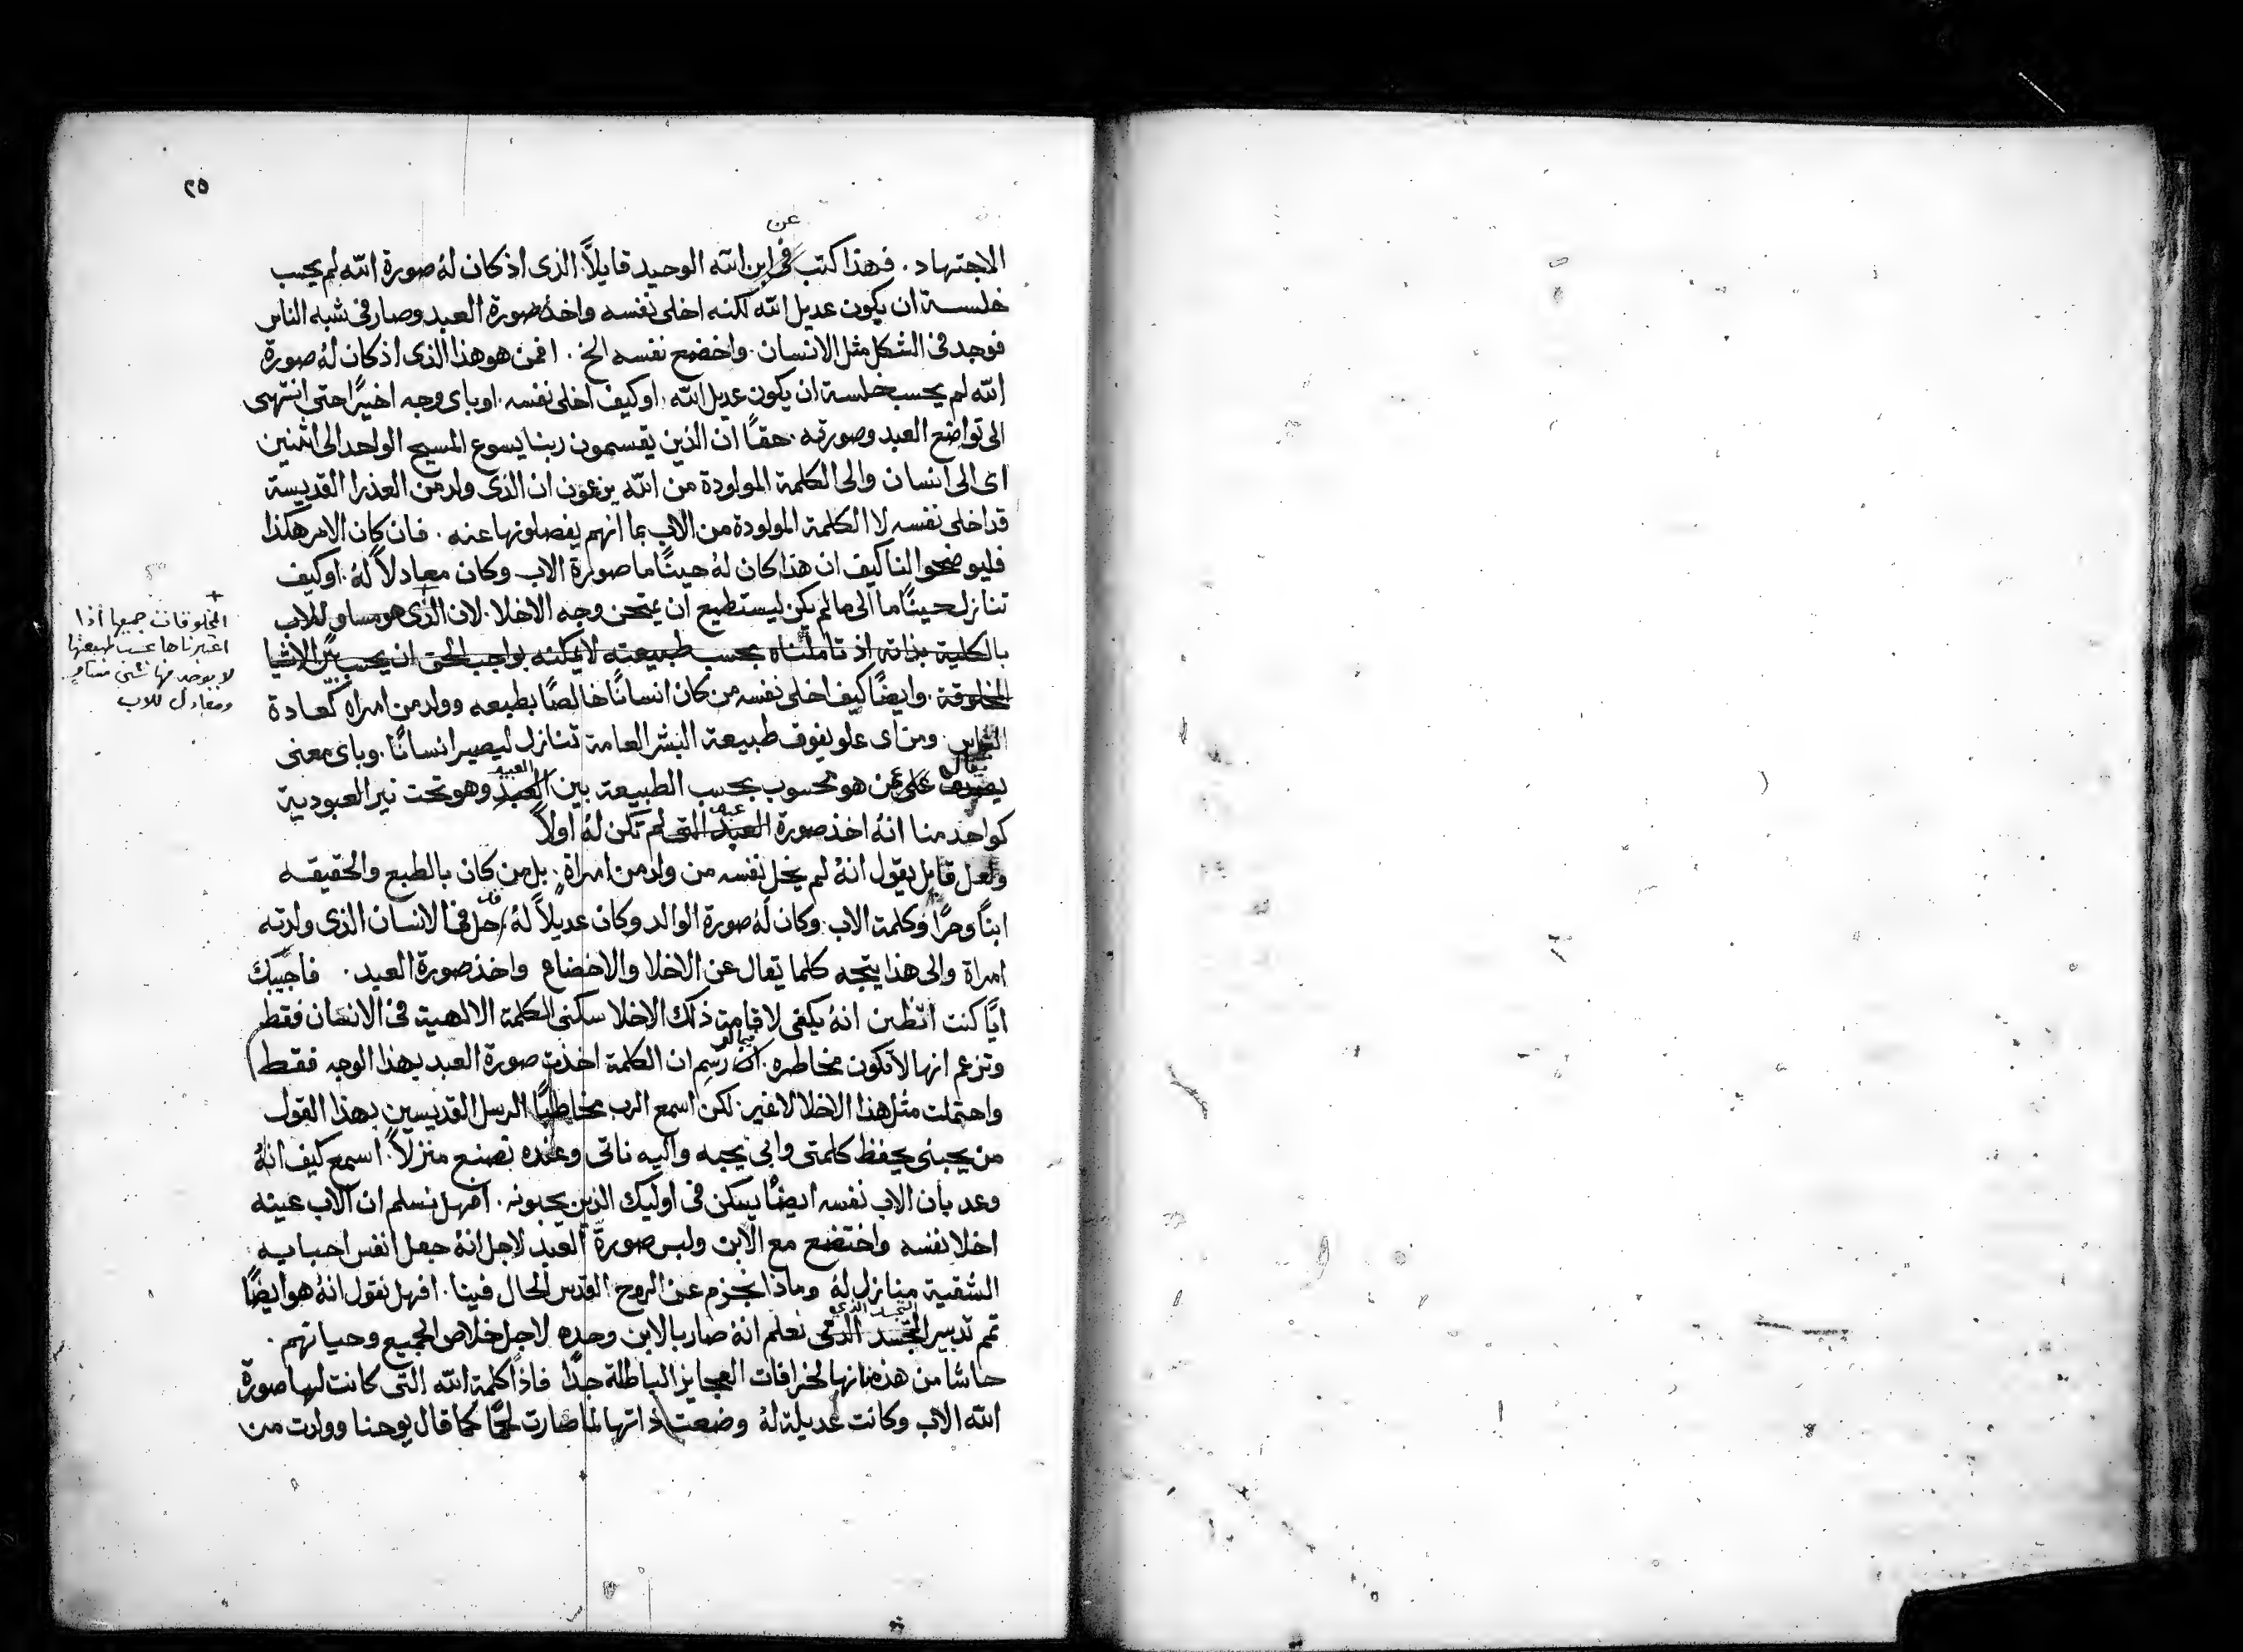 ٢٥
عن
الاجتهاد . فهذا كتب في ابن الله الوحيد قايلاً. الذى اذ كان لهُ صورة الله لم يحسب
خلسة ان يكون عديل الله لكنه اخلى نفسه واخذ صورة العبد وصار في شبه الناس
فوجد في الشكل مثل الانسان . واخضع نفسه الخ . افمن هو هذا الذى اذ كان لهُ صورة
الله لم يحسب خلسة ان يكون عديل الله . او كيف اخلى نفسه . او باى وجه اخيرًا حتى انتهى
الى تواضع العبد وصورته . حقًا ان الذين يقسمون ربنا يسوع المسيح الواحد الى اثنين
اى الى انسان والى الكلمة المولودة من الله يزعمون ان الذى ولد من العذرا القديسة
قد اخلى نفسه لا الكلمة المولودة من الاب بما انهم يفصلونها عنه . فان كان الامر هكذا
فليوضحوا لنا كيف ان هذا كان لهُ حينًا ما صورة الاب وكان معادلاً لهُ . او كيف
تنازل حينًا ما الى ما لم يكن ليستطيع ان يمتحن وجه الاخلا . لان الذى هو مساوٍ للاب
بالكلية بذاته اذ تاملناه بحسب طبيعته لا يمكنه بواجب الحق ان يحسب بين الاشيا
المخلوقة . وايضًا كيف اخلى نفسه من كان انسانًا خالصًا بطبعه وولد من امراه كعادة
الناس . ومن اى علو يفوق طبيعة البشر العامة تنازل ليصير انسانًا . وباى معنى
يقال
يصدف على من هو محسوب بحسب الطبيعة بين العبد وهو تحت نير العبودية
العبيد
كواحد منا انهُ اخذ صورة العبد التى لم تكن لهُ اولاً
عبد
ولعل قايل يقول انهُ لم يخل نفسه من ولد من امراة . بل من كان بالطبع والحقيقه
ابنًا وحرًا وكلمة الاب . وكان لهُ صورة الوالد وكان عديلاً لهُ حل في الانسان الذى ولدته
امراة والى هذا يتجه كلما يقال عن الاخلا والاخضاع واخذ صورة العبد . فاجيبك
ايًا كنت اتظن انهُ يكفى لاقامة ذلك الاخلا سكنى الكلمة الالهية في الانسان فقط
وتزعم انها لا تكون مخاطره . ان رسم ان الكلمة اخذت صورة العبد بهذا الوجه فقط
واحتملت مثل هذا الاخلا لا غير . لكن اسمع الرب مخاطبًا الرسل القديسين بهذا القول
من يحبنى يحفظ كلمتى وابى يحبه واليه ناتى وعنده نصنع منزلاً . اسمع كيف انهُ
وعد بان الاب نفسه ايضًا يسكن في اوليك الذين يحبونه . افهل نسلم ان الاب عينه
اخلا نفسه واختضع مع الابن ولبس صورة العبد لاجل انهُ جعل انفس احبايه
الشقية منازل لهُ وماذا نجزم عن الروح القدس الحال فينا . افهل نقول انهُ هو ايضًا
التجسد الذي
تمم تدبير التجسد الذى نعلم انهُ صار بالابن وحده لاجل خلاص الجميع وحياتهم .
حاشا من هذه فانها لخرافات العجايز الباطلة جدًا فاذًا كلمة الله التى كانت لها صورة
الله الاب وكانت عديلة لهُ وضعت ذاتها لما صارت لحمًا كما قال يوحنا وولدت من
المخلوقات جميعها اذا
اعتبرناها حسب طبيعتها
لا يوجد منها شى مساوٍ
ومعادل للاب